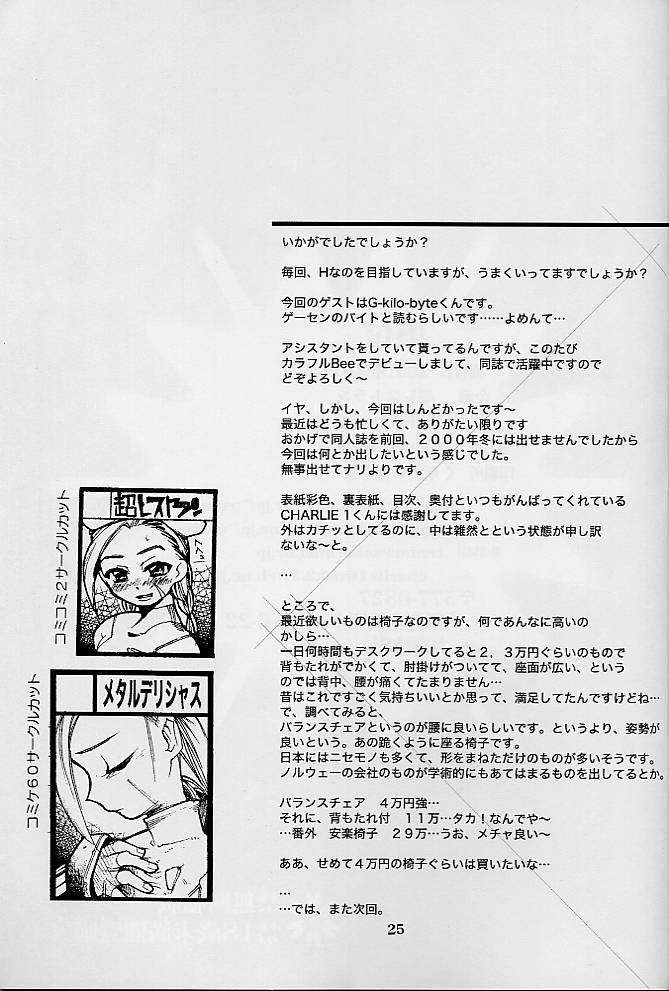 いかがでしたでしょうか?
毎回、Hなのを目指していますが、うまくいってますでしょうか?
今回のゲストはG-kilo-byteくんです。
ゲーセンのバイトと読むらしいです……よめんて…
アシスタントをしていて貰ってるんですが、このたび
カラフルBeeでデビューしまして、同誌で活躍中ですので
どぞよろしく〜
イヤ、しかし、今回はしんどかったです〜
最近はどうも忙しくて、ありがたい限りです
おかげで同人誌を前回、2000年冬には出せませんでしたから
今回は何とか出したいという感じでした。
無事出せてナリよりです。
表紙彩色、裏表紙、目次、奥付といつもがんばってくれている
CHARLIE 1くんには感謝してます。
外はカチッとしてるのに、中は雑然とという状態が申し訳
ないな〜と。
…
ところで、
最近欲しいものは椅子なのですが、何であんなに高いの
かしら…
一日何時間もデスクワークしてると2,3万円ぐらいのもので
背もたれがでかくて、肘掛けがついてて、座面が広い、という
のでは背中、腰が痛くてたまりません…
昔はこれですごく気持ちいいとか思って、満足してたんですけどね…
で、調べてみると、
バランスチェアというのが腰に良いらしいです。というより、姿勢が
良いという。あの跪くように座る椅子です。
日本にはニセモノも多くて、形をまねただけのものが多いそうです。
ノルウェーの会社のものが学術的にもあてはまるものを出してるとか。
バランスチェア 4万円強…
それに、背もたれ付 11万…タカ!なんでや〜
…番外 安楽椅子 29万…うお、メチャ良い〜
ああ、せめて4万円の椅子ぐらいは買いたいな…
…
…では、また次回。
25
コミコミ2サークルカット
超レストラン
コミケ60サークルカット
メタルデリシャス